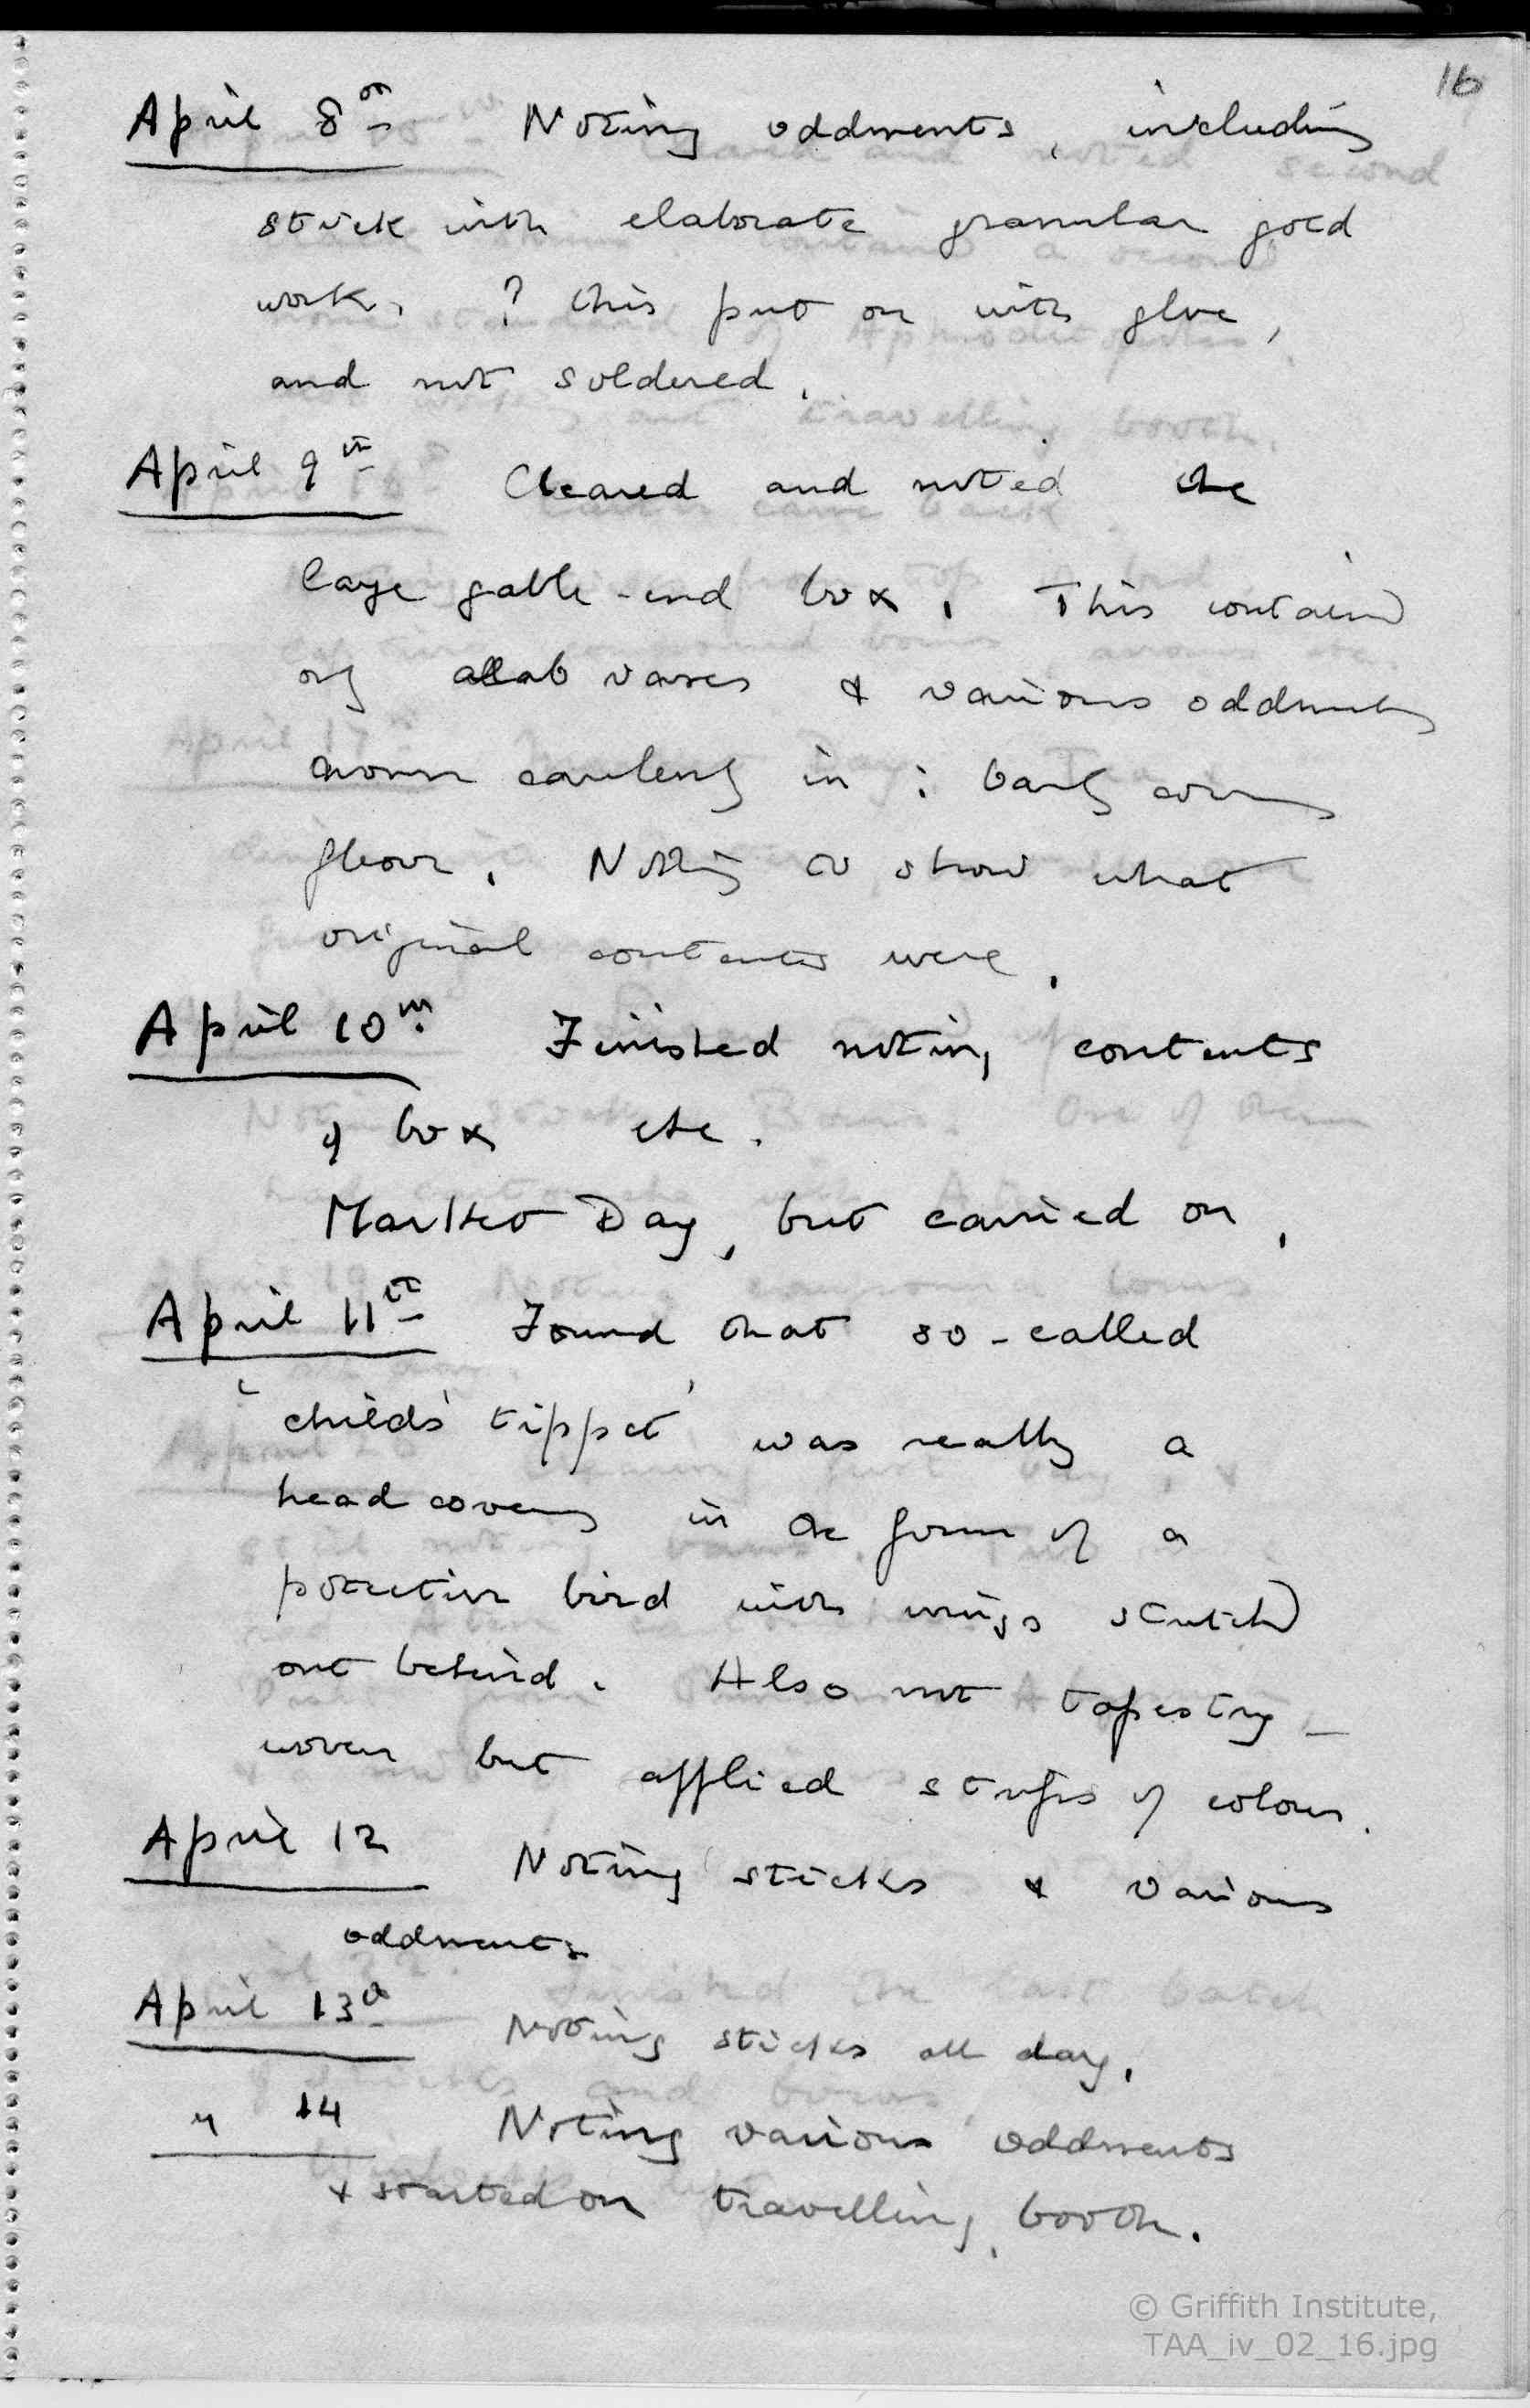 16
April 8th Noting oddments, including
stick with elaborate granular gold
work. ? this put on with glue,
and not soldered.
April 9th Cleared and noted the
large gable-end box. This contained
only alab vases & various oddments
thrown carelessly in : barely covering
floor. Nothing to show what
original contents were.
April 10th Finished noting contents
of box etc.
Market Day, but carried on.
April 11th Found that so-called
'child's tippet' was really a
head covering in the form of a
protective bird with wings stretched
out behind. Also not tapestry-
woven but applied strips of colour.
April 12 Noting sticks & various
oddments.
April 13th Noting sticks all day.
" 14 Noting various oddments
& started on travelling booth.
© Griffith Institute,
TAA_iv_02_16.jpg